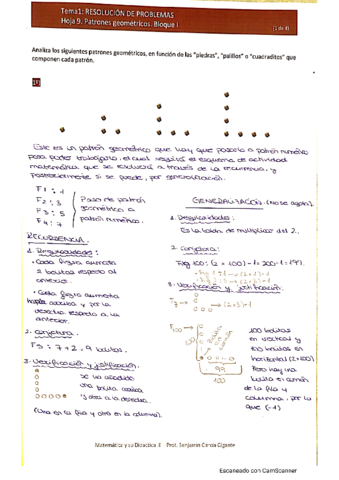 Tema1: RESOLUCIÓN DE PROBLEMAS
Hoja 9. Patrones geométricos. Bloque I
(1 de 4)
Analiza los siguientes patrones geométricos, en función de las "piedras", "palillos" o "cuadraditos" que
componen cada patrón.
Este es un patrón geométrico que hay que pasarlo a patrón numérico
para poder trabajarlo, el cual seguirá el esquema de actividad
matemática que se resolverá a través de la recurrencia, y
posteriormente si se puede, por generalización.
F1: 1
F2: 3
F3: 5
F4: 7
Paso de patrón
geométrico a
patrón numérico.
RECURRENCIA
1. Regularidades:
• Cada figura aumenta
2 bolitas respecto al
anterior.
• Cada figura aumenta
hacia arriba y por la
derecha respecto a la
anterior.
2. Conjetura.
F5: 7 + 2 = 9 bolitas.
3. Verificación y justificación.
se ha añadido
una bolita arriba
y otra a la derecha.
(Una en la fila y otra en la columna).
GENERALIZACIÓN
1. Regularidades:
Es la tabla de multiplicar del 2.
2. Conjetura:
Fig 100: (2 × 100) - 1 = 200 - 1 = 199.
3. Verificación y justificación.
F100
99
100
100 bolitas
en vertical y
100 bolitas en
horizontal (2×100)
Pero hay una
bolita en común
de la fila y
columna, por lo
que (-1)
Matemática y su Didáctica II Prof. Benjamín García Gigante
Escaneado con CamScanner